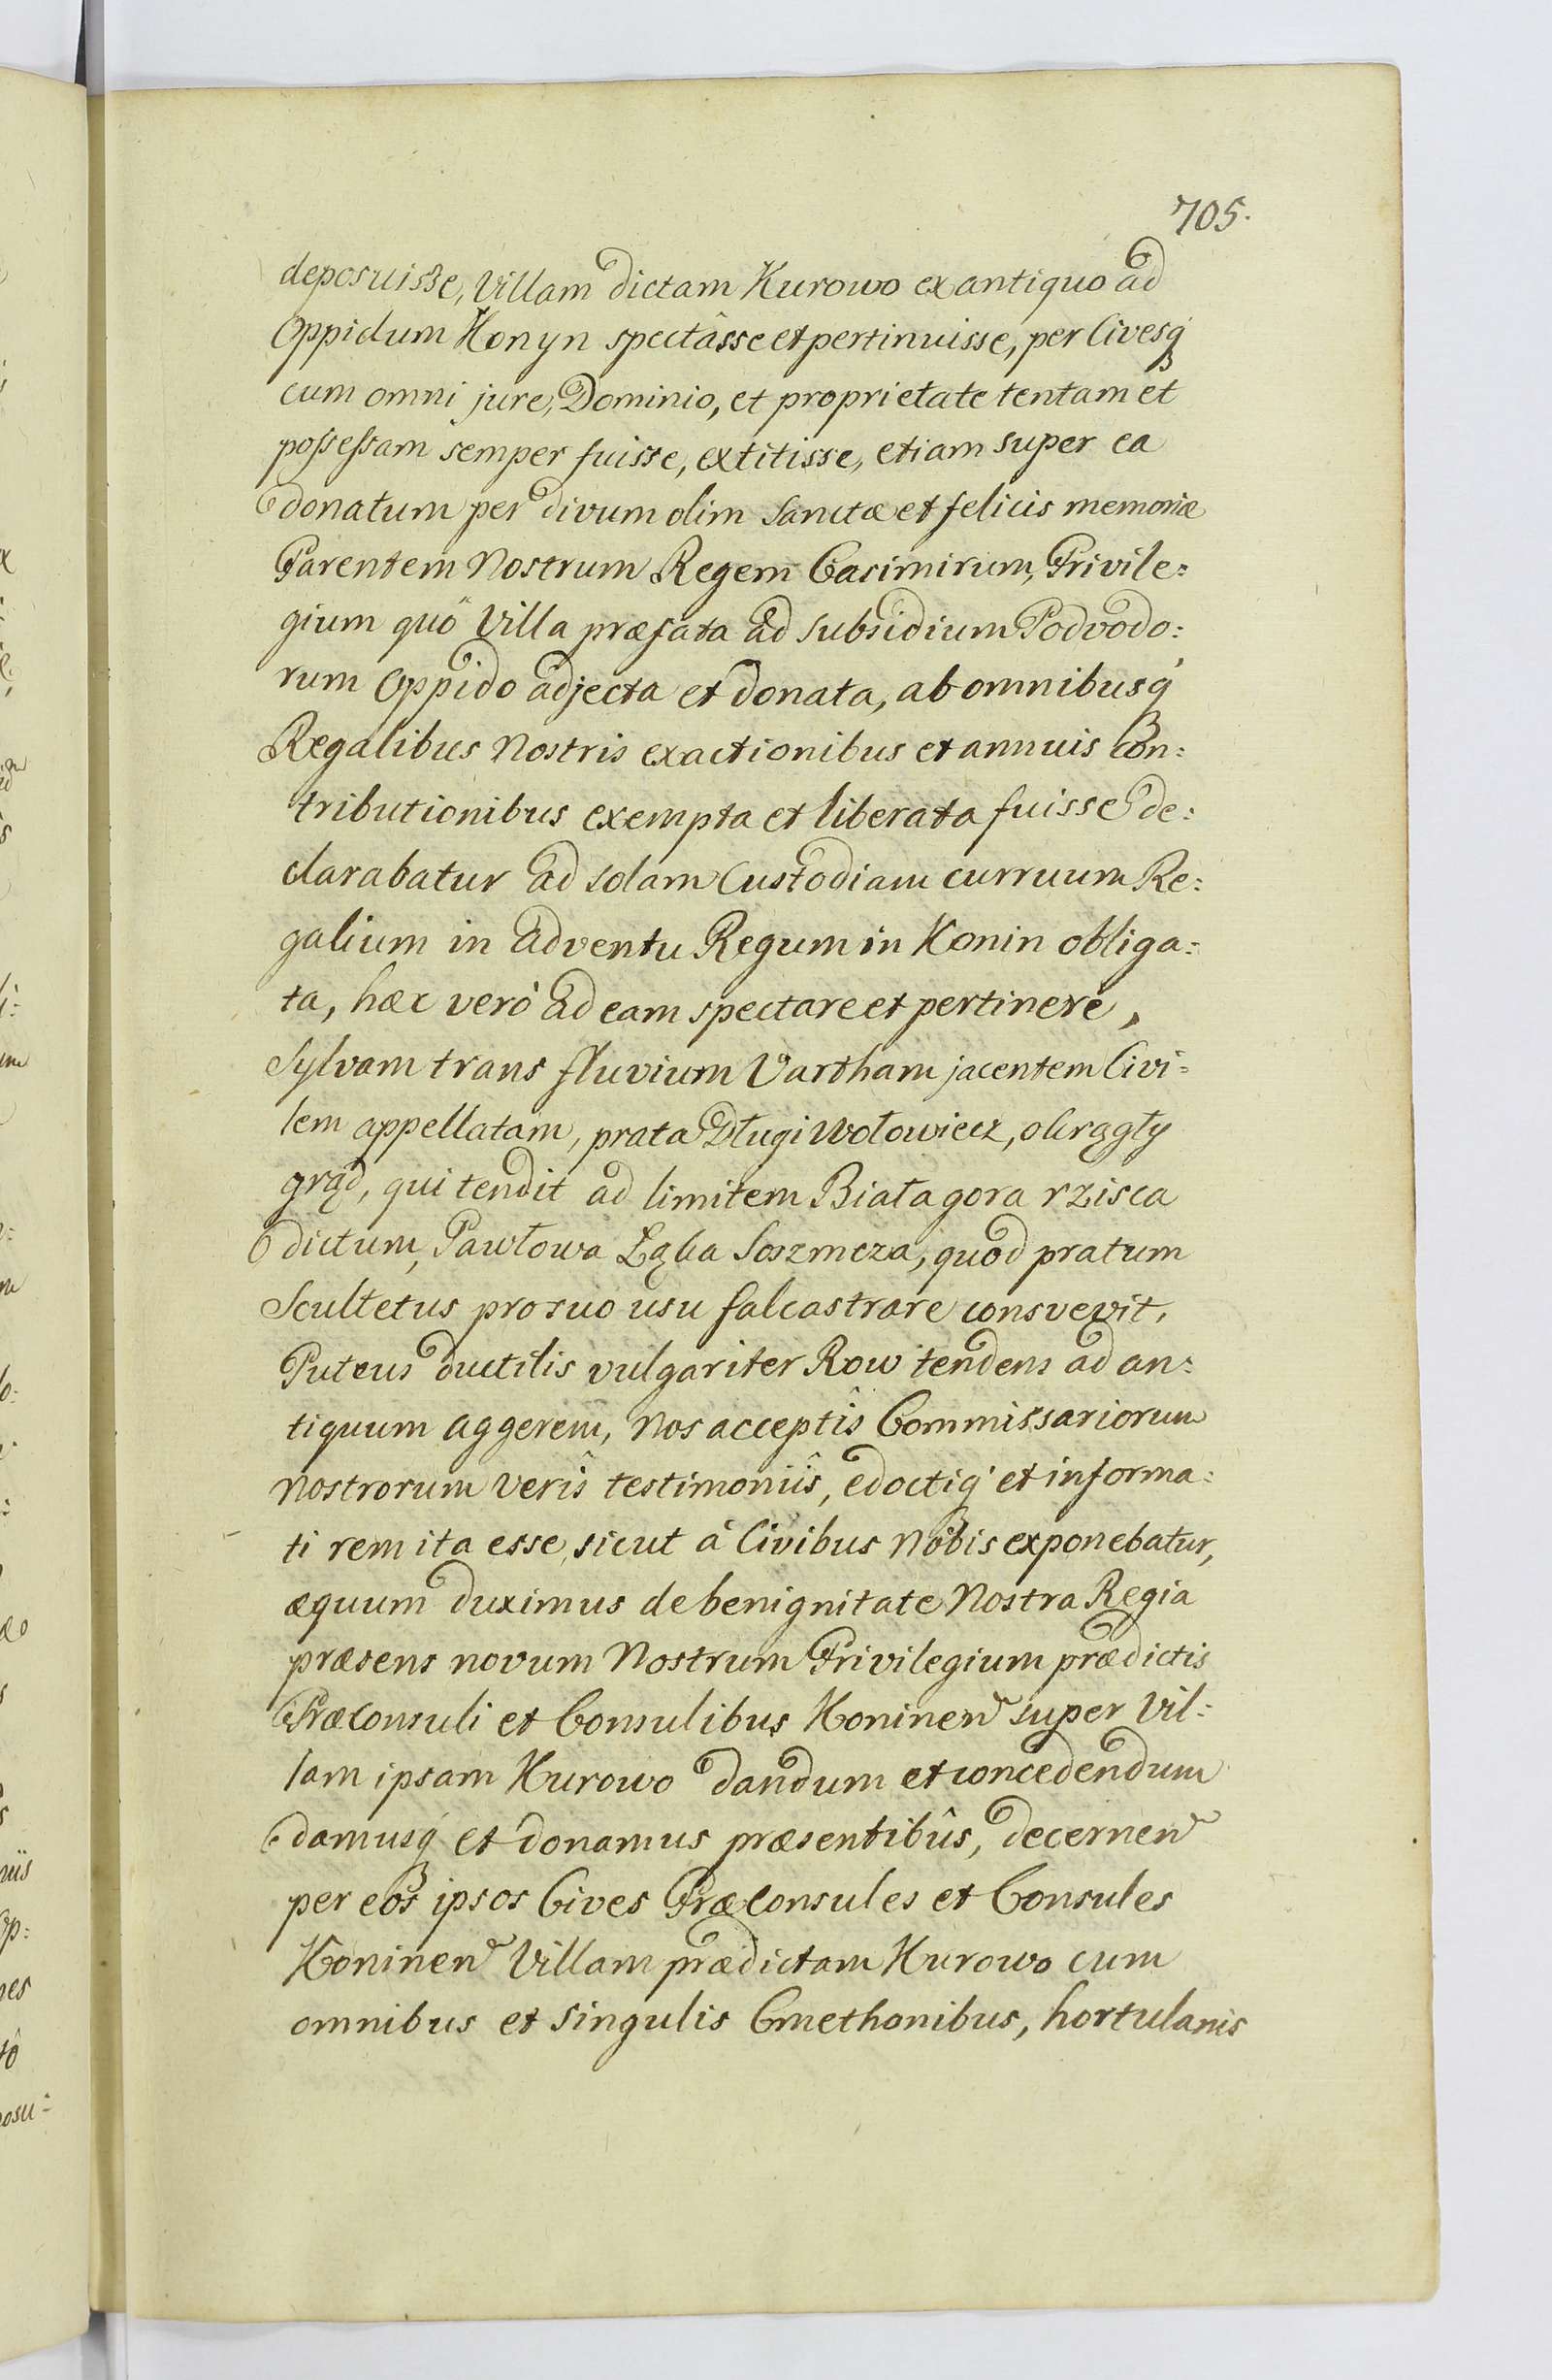 705.
deposuisse, Villam dictam Kurowo ex antiquo ad
Oppidum Konyn spectâsse et pertinuisse, per Civesq́
cum omni jure, Dominio, et proprietate tentam et
possessam semper fuisse, extitisse, etiam super ea
donatum per divum olim Sanctæ et felicis memoriæ
Parentem Nostrum Regem Casimirum, Privile=
gium quô Villa præfata ad subsidium Podvodo=
rum Oppido adjecta et donata, ab omnibusq́
Regalibus Nostris exactionibus et annuis con=
tributionibus exempta et liberata fuisse de=
clarabatur ad solam Custodiam curruum Re=
galium in adventu Regum in Konin obliga=
ta, hæc verò ad eam spectare et pertinere,
Sylvam trans fluvium Vartham jacentem Civi=
lem appellatam, prata Długi Wołowiecz, okrągły
grąd, qui tendit ad limitem Biała gora rzisca
dictum, Pawłowa Łąka Soszmcza, quod pratum
Scultetus pro suo usu falcastrare consvevit,
Puteus ductilis vulgariter Row tendens ad an=
tiquum aggerem, Nos acceptîs Commissariorum
Nostrorum verîs testimoniîs, edoctiq́ et informa=
ti rem ita esse, sicut à Civibus Nobis exponebatur,
æquum duximus de benignitate Nostra Regia
præsens novum Nostrum Privilegium prædictis
Præconsuli et Consulibus Koninen super Vil=
lam ipsam Kurowo dandum et concedendum
damusq́ et donamus præsentibûs, decernen
per eos ipsos Cives Præconsules et Consules
Koninen Villam prædictam Kurowo cum
omnibus et singulis Cmethonibus, hortulanis